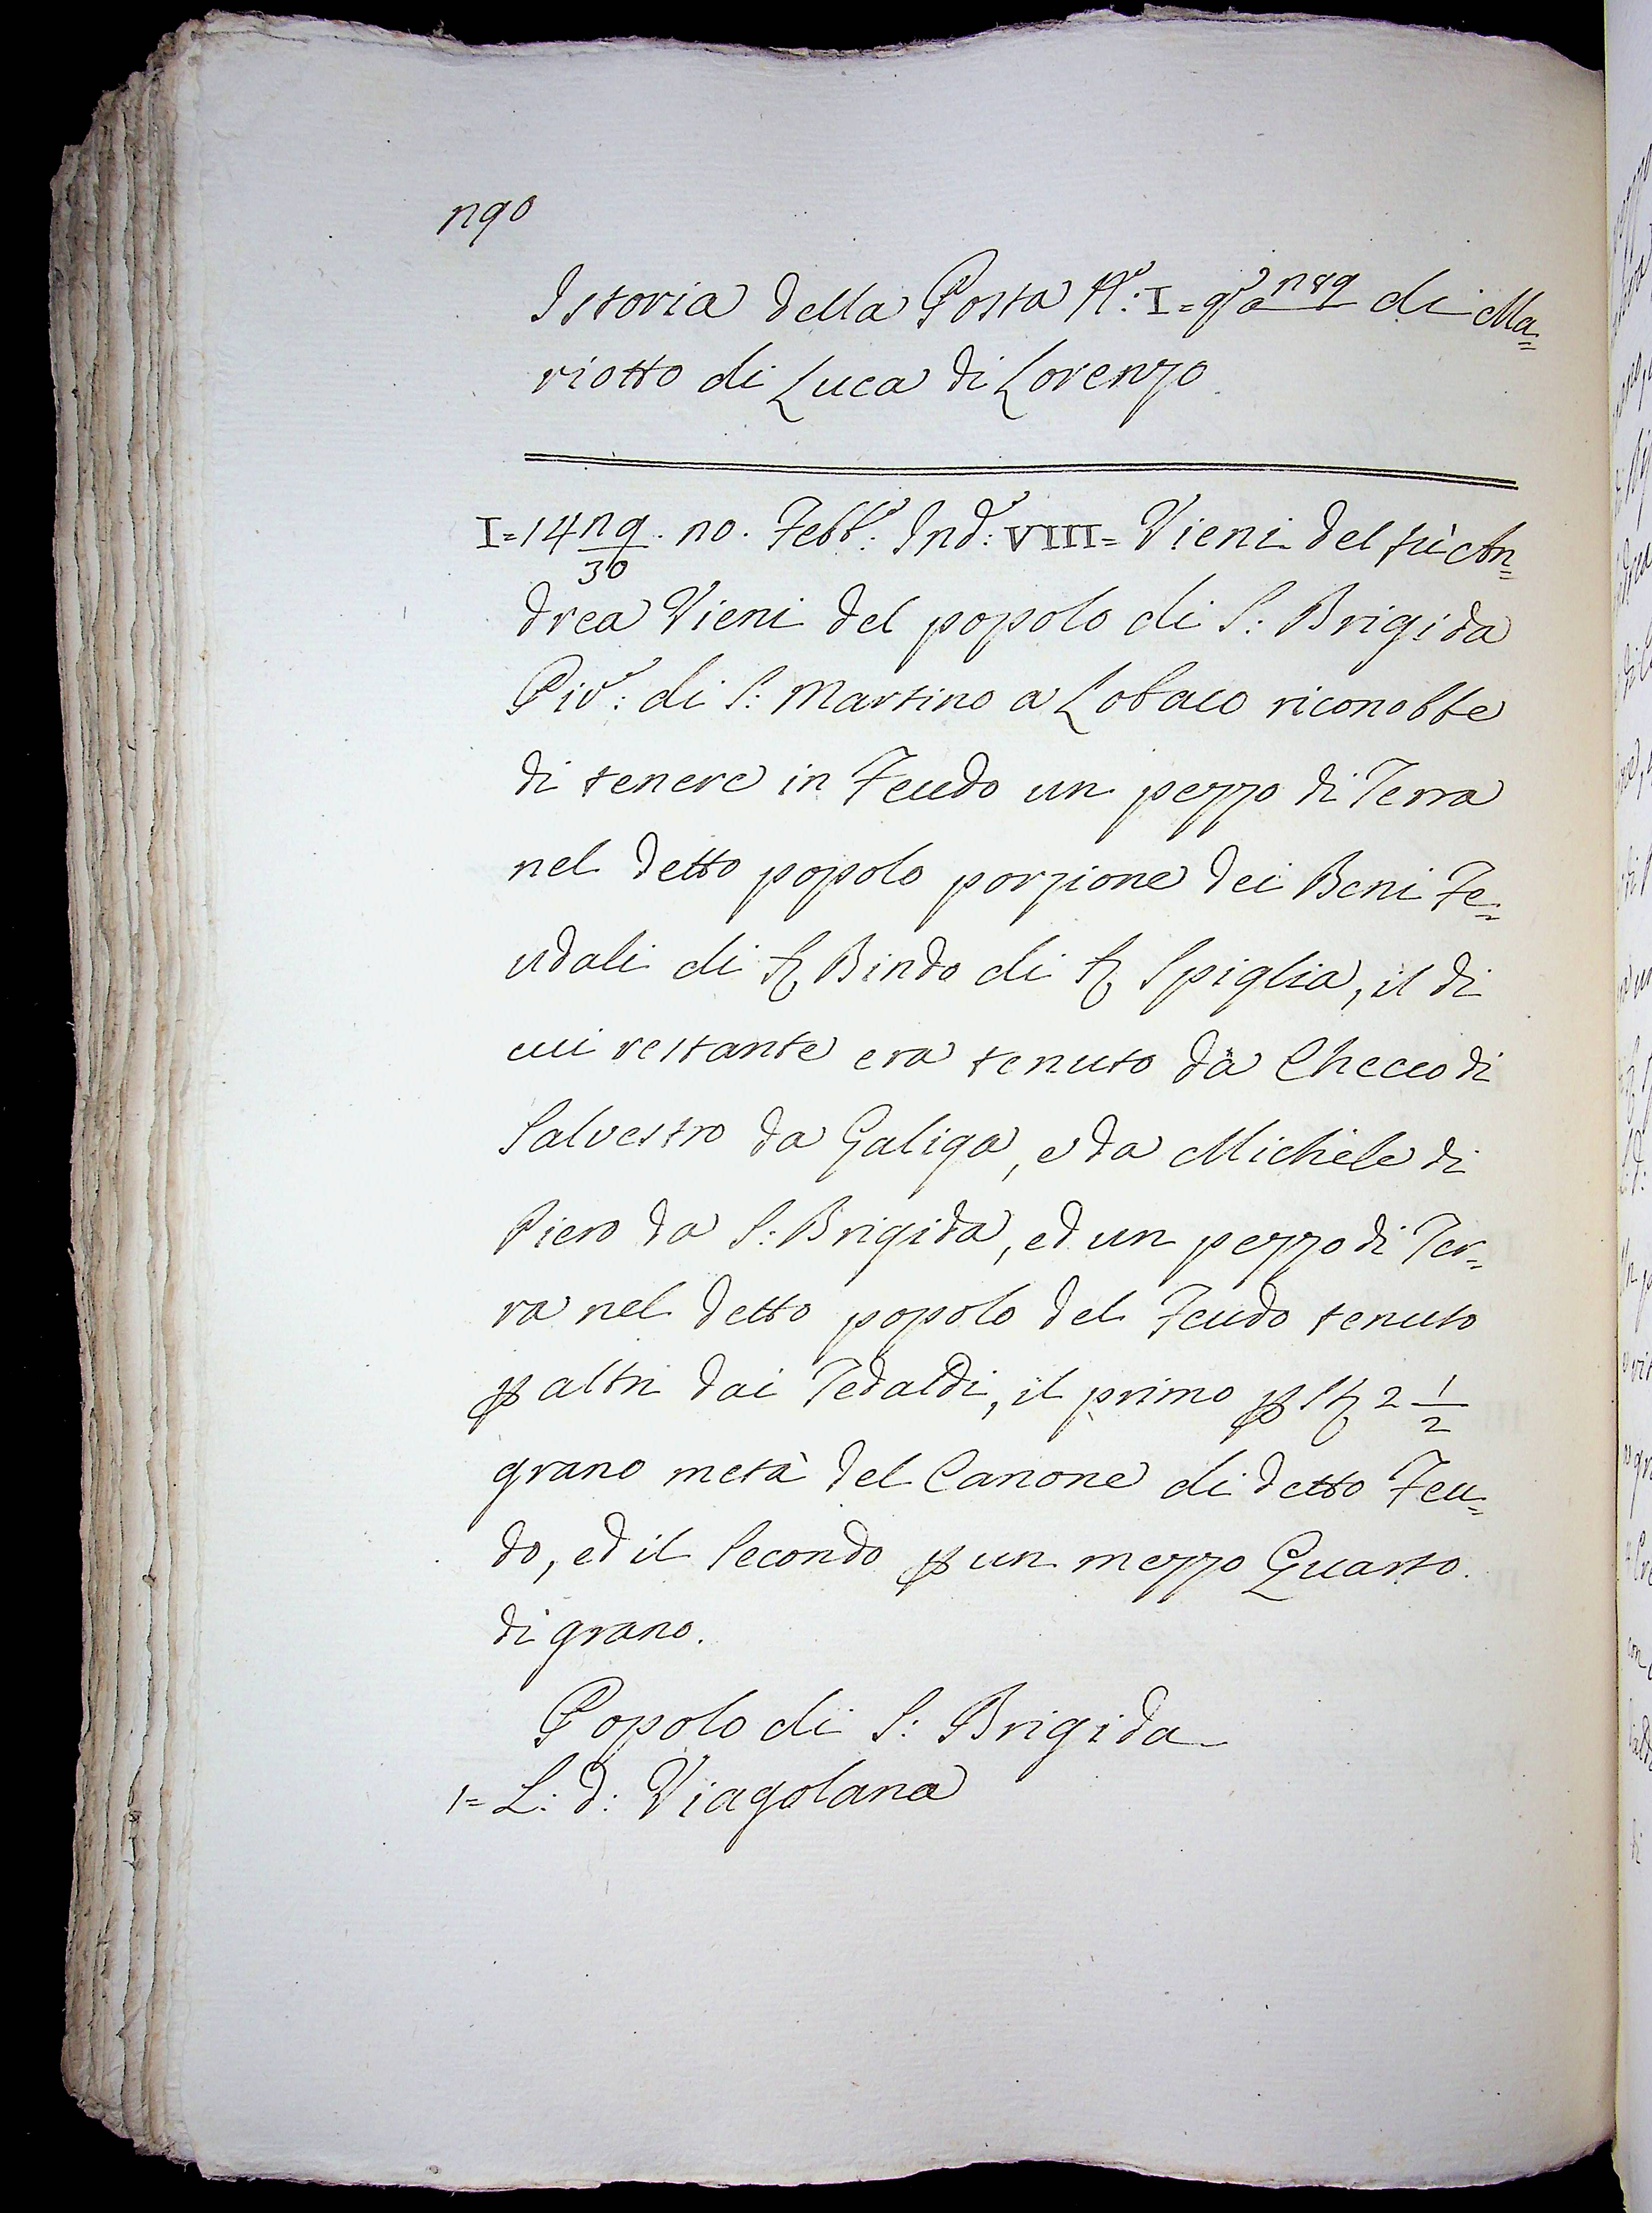 290
Istoria della Posta N.° I = q.° a 289 di Ma=
riotto di Luca di Lorenzo
I = 1429/30. 20. Febb.° Ind.°: VIII = Vieni del fù An=
drea Vieni del popolo di S: Brigida
Piv.°: di S: Martino a Lobaco riconobbe
di tenere in Feudo un pezzo di Terra
nel detto popolo porzione dei Beni Fe=
udali di Bindo di Spiglia, il di
cui restante era tenuto da Checco di
Salvestro da Galiga, e da Michele di
Piero da S: Brigida, ed un pezzo di Ter=
ra nel detto popolo del Feudo tenuto
ꝑ altri dai Tedaldi, il primo ꝑ St 2 1/2
grano metà del Canone di detto Feu=
do, ed il Secondo ꝑ un mezzo Quarto
di grano.
Popolo di S: Brigida
1 = L: d: Viagolana